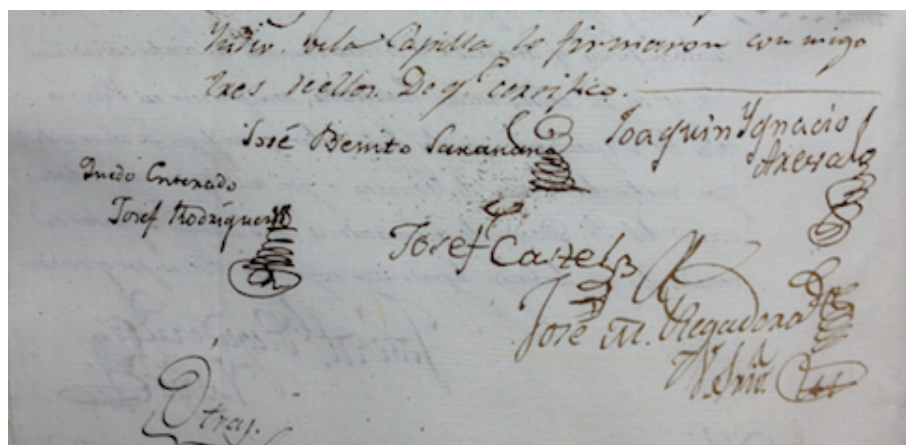 de la Capilla le firmaron conmigo
tres de ellos. De q.e certifico.
José Benito Saravana
Joaquin Ygnacio
Arexal
Quedo Enterado
Josef Rodriguez
Josef Castel
José M. Regadora
V. Sriô.
Otras.